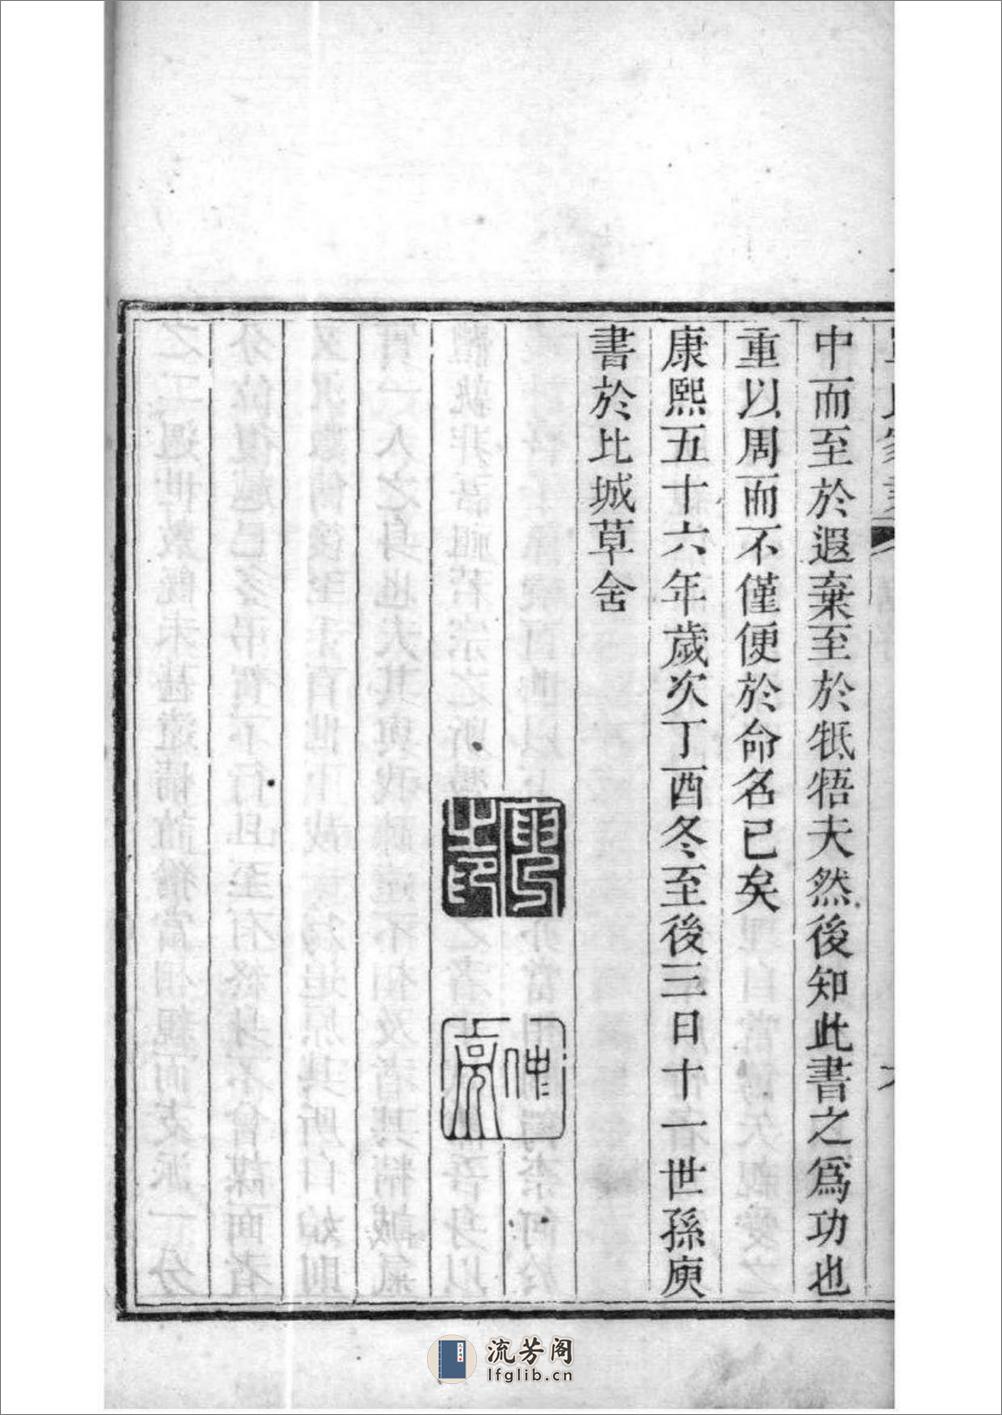 中而至於遐棄至於牴牾夫然後知此書之爲功也
重以周而不僅便於命名已矣
康熙五十六年歲次丁酉冬至後三日十一世孫庾
書於比城草舍
之印
仲亮
流芳阁
lfglib.cn